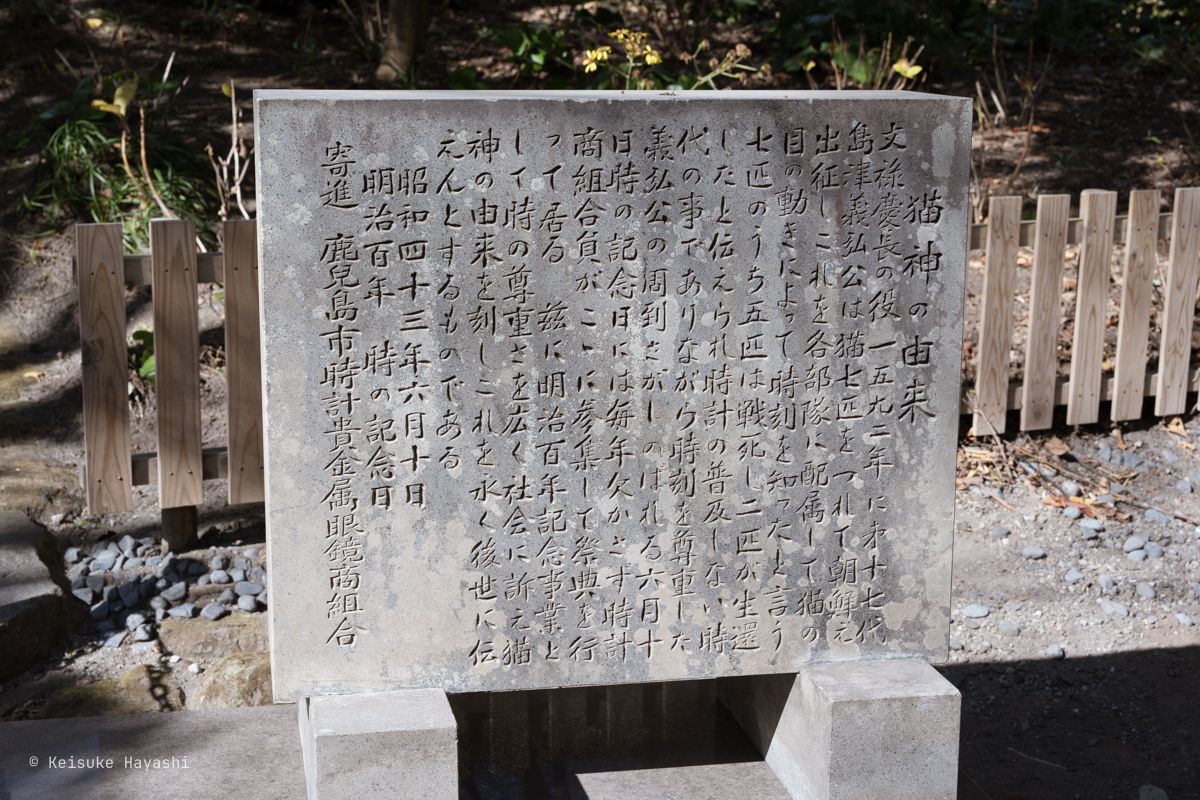 猫神の由来
文禄慶長の役一五九二年に才十七代
島津義弘公は猫七匹をつれて朝鮮え
出征しこれを各部隊に配属して猫の
目の動きによって時刻を知ったと言う
七匹のうち五匹は戦死し二匹が生還
したと伝えられ時計の普及しない時
代の事でありながら時刻を尊重した
義弘公の周到さがしのばれる六月十
日時の記念日には毎年欠かさず時計
商組合員がこゝに参集して祭典を行
って居る 兹に明治百年記念事業と
して時の尊重さを広く社会に訴え猫
神の由来を刻しこれを永く後世に伝
えんとするものである
昭和四十三年六月十日
明治百年 時の記念日
寄進 鹿児島市時計貴金属眼鏡商組合
© Keisuke Hayashi